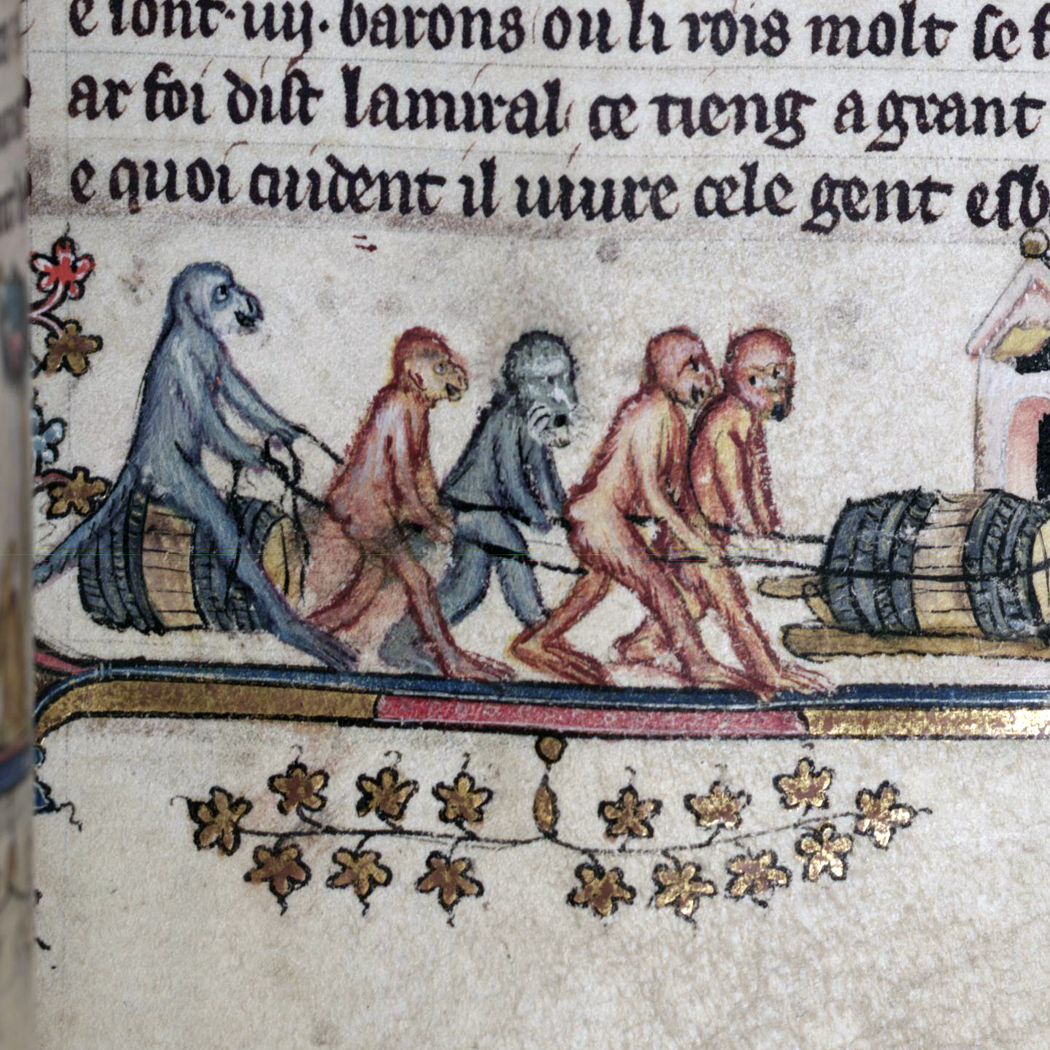 e sont·iiij· barons ou li rois molt se f
ar foi dist lamiral ce tieng a grant
e quoi cuident il uiure cele gent esb